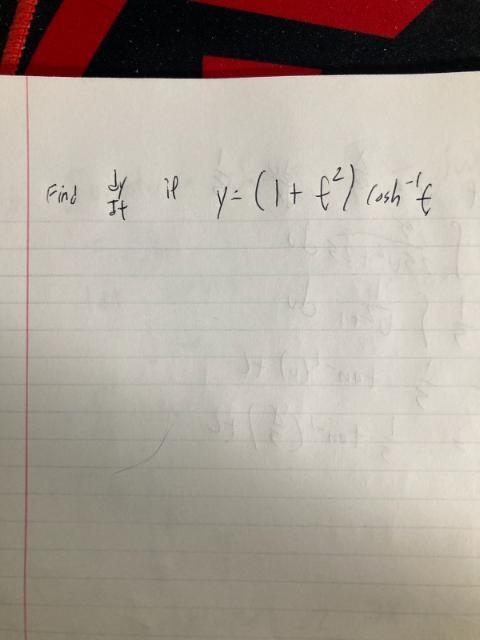 Find dy/dt if y = (1 + t²) cosh⁻¹ t